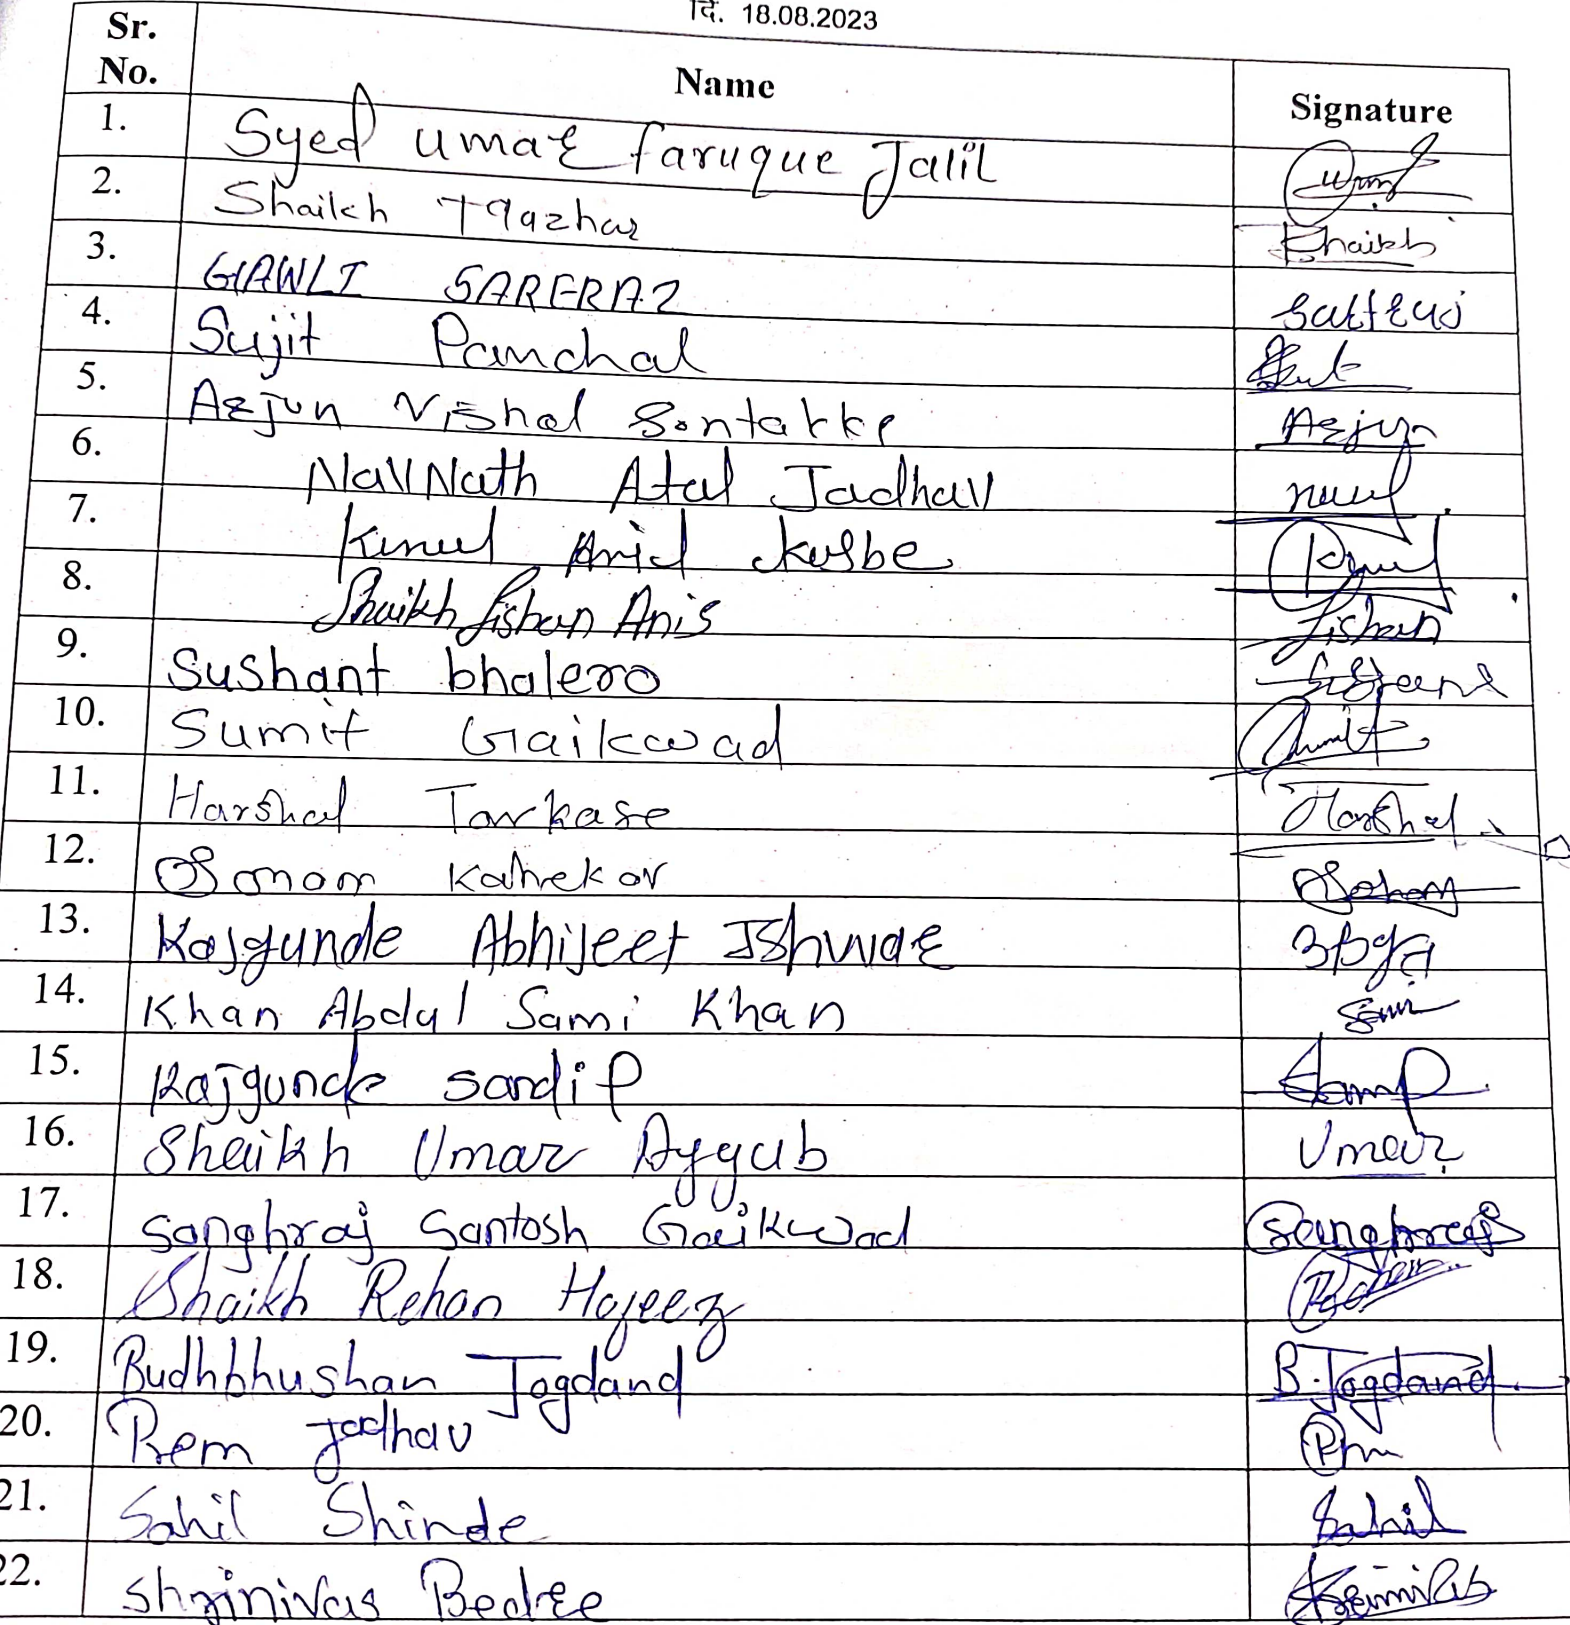 दि. 18.08.2023
Sr. No. Name Signature
1. Syed umar faruque Jalil
2. Shaikh Shaikh
3. GAWLI SARFRAZ
4. Sujit Panchal
5. Arjun Vishal Sontakke Arjun
6. NavNath Atul Jadhav
7. Kunal Anil Kasbe
8. Shaikh Jishan Anis Jishan
9. Sushant bhalero
10. Sumit Gaikwad Sumit
11. Harshal Tarkase Harshal
12. Sonam Kahekar Sonam
13. Rajgunde Abhijeet Ishwar
14. Khan Abdul Sami Khan Sami
15. Rajgunde sandip
16. Shaikh Umar Ayyub Umar
17. Sanghraj Santosh Gaikwad Sanghraj
18. Shaikh Rehan Hafeez
19. Budhbhushan Jogdand B. Jogdand
20. Prem Jadhav
21. Sahil Shinde Sahil
22. Shrinivas Bedre